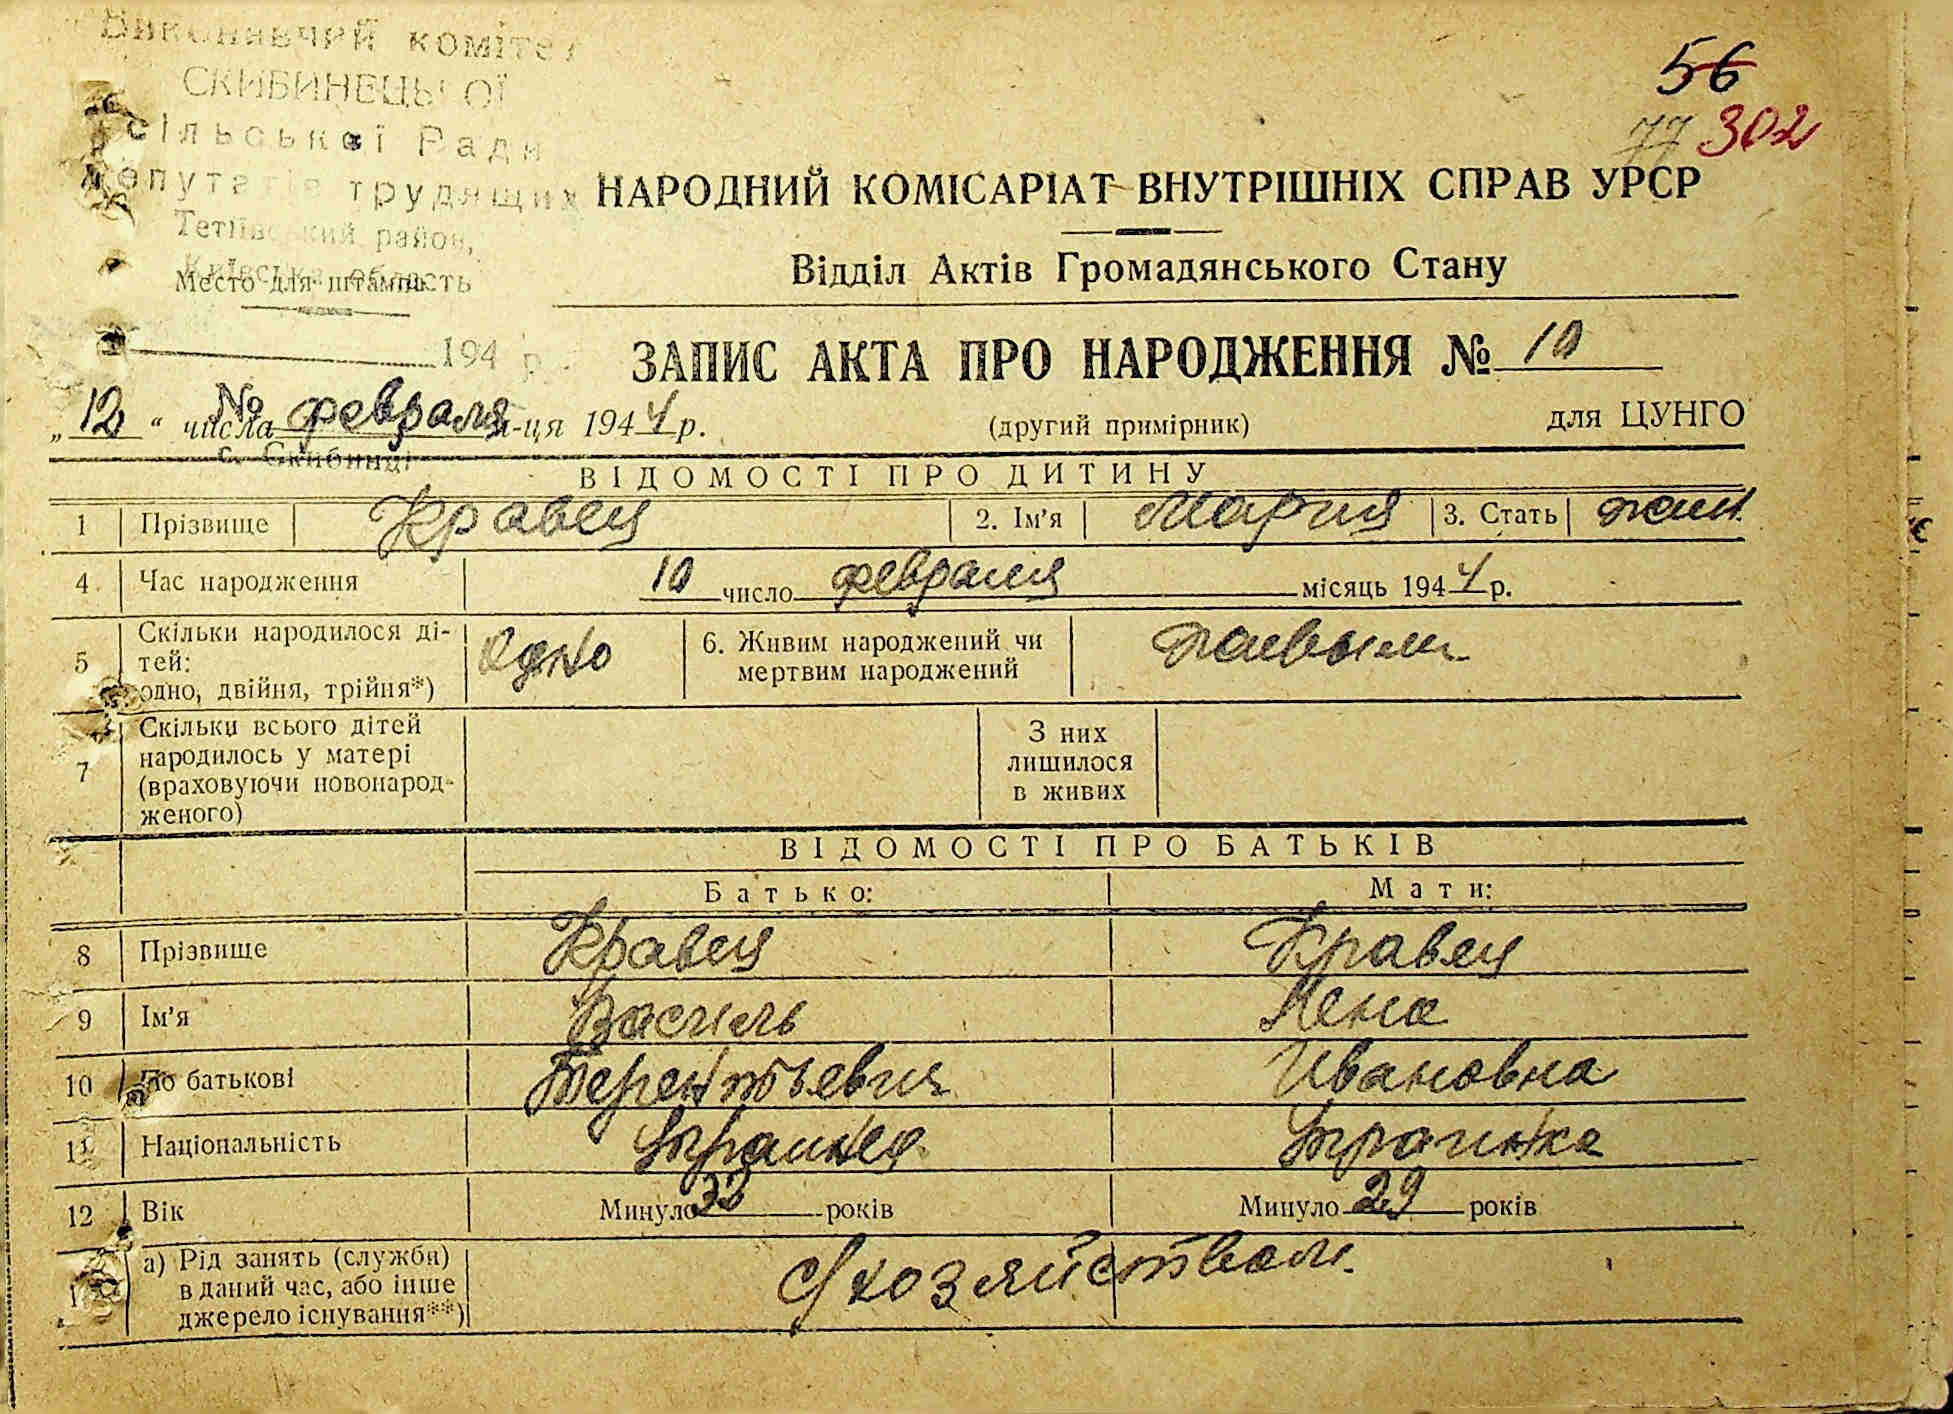 Виконавчий комітет
СКИБИНЕЦЬКОЇ
сільської Ради
депутатів трудящих
Тетіївський район,
Київська область
Место для штампа
194 р.
№
с. Скибинці
56
77 302
НАРОДНИЙ КОМІСАРІАТ ВНУТРІШНІХ СПРАВ УРСР
Відділ Актів Громадянського Стану
ЗАПИС АКТА ПРО НАРОДЖЕННЯ № 10
„12“ числа февраля м-ця 1944 р. (другий примірник) для ЦУНГО
ВІДОМОСТІ ПРО ДИТИНУ
1 Прізвище Кравец 2. Ім'я Мария 3. Стать жен.
4 Час народження 10 число февраля місяць 1944 р.
5 Скільки народилося ді-
тей:
одно, двійня, трійня*) Одно
6. Живим народжений чи
мертвим народжений живым
7 Скільки всього дітей
народилось у матері
(враховуючи новонарод-
женого)
З них
лишилося
в живих
ВІДОМОСТІ ПРО БАТЬКІВ
Батько: Мати:
8 Прізвище Кравец Кравец
9 Ім'я Василь Лена
10 По батькові Терентьевич Ивановна
11 Національність
12 Вік Минуло років Минуло 29 років
а) Рід занять (служби)
в даний час, або інше
джерело існування**) С/хозяйством.